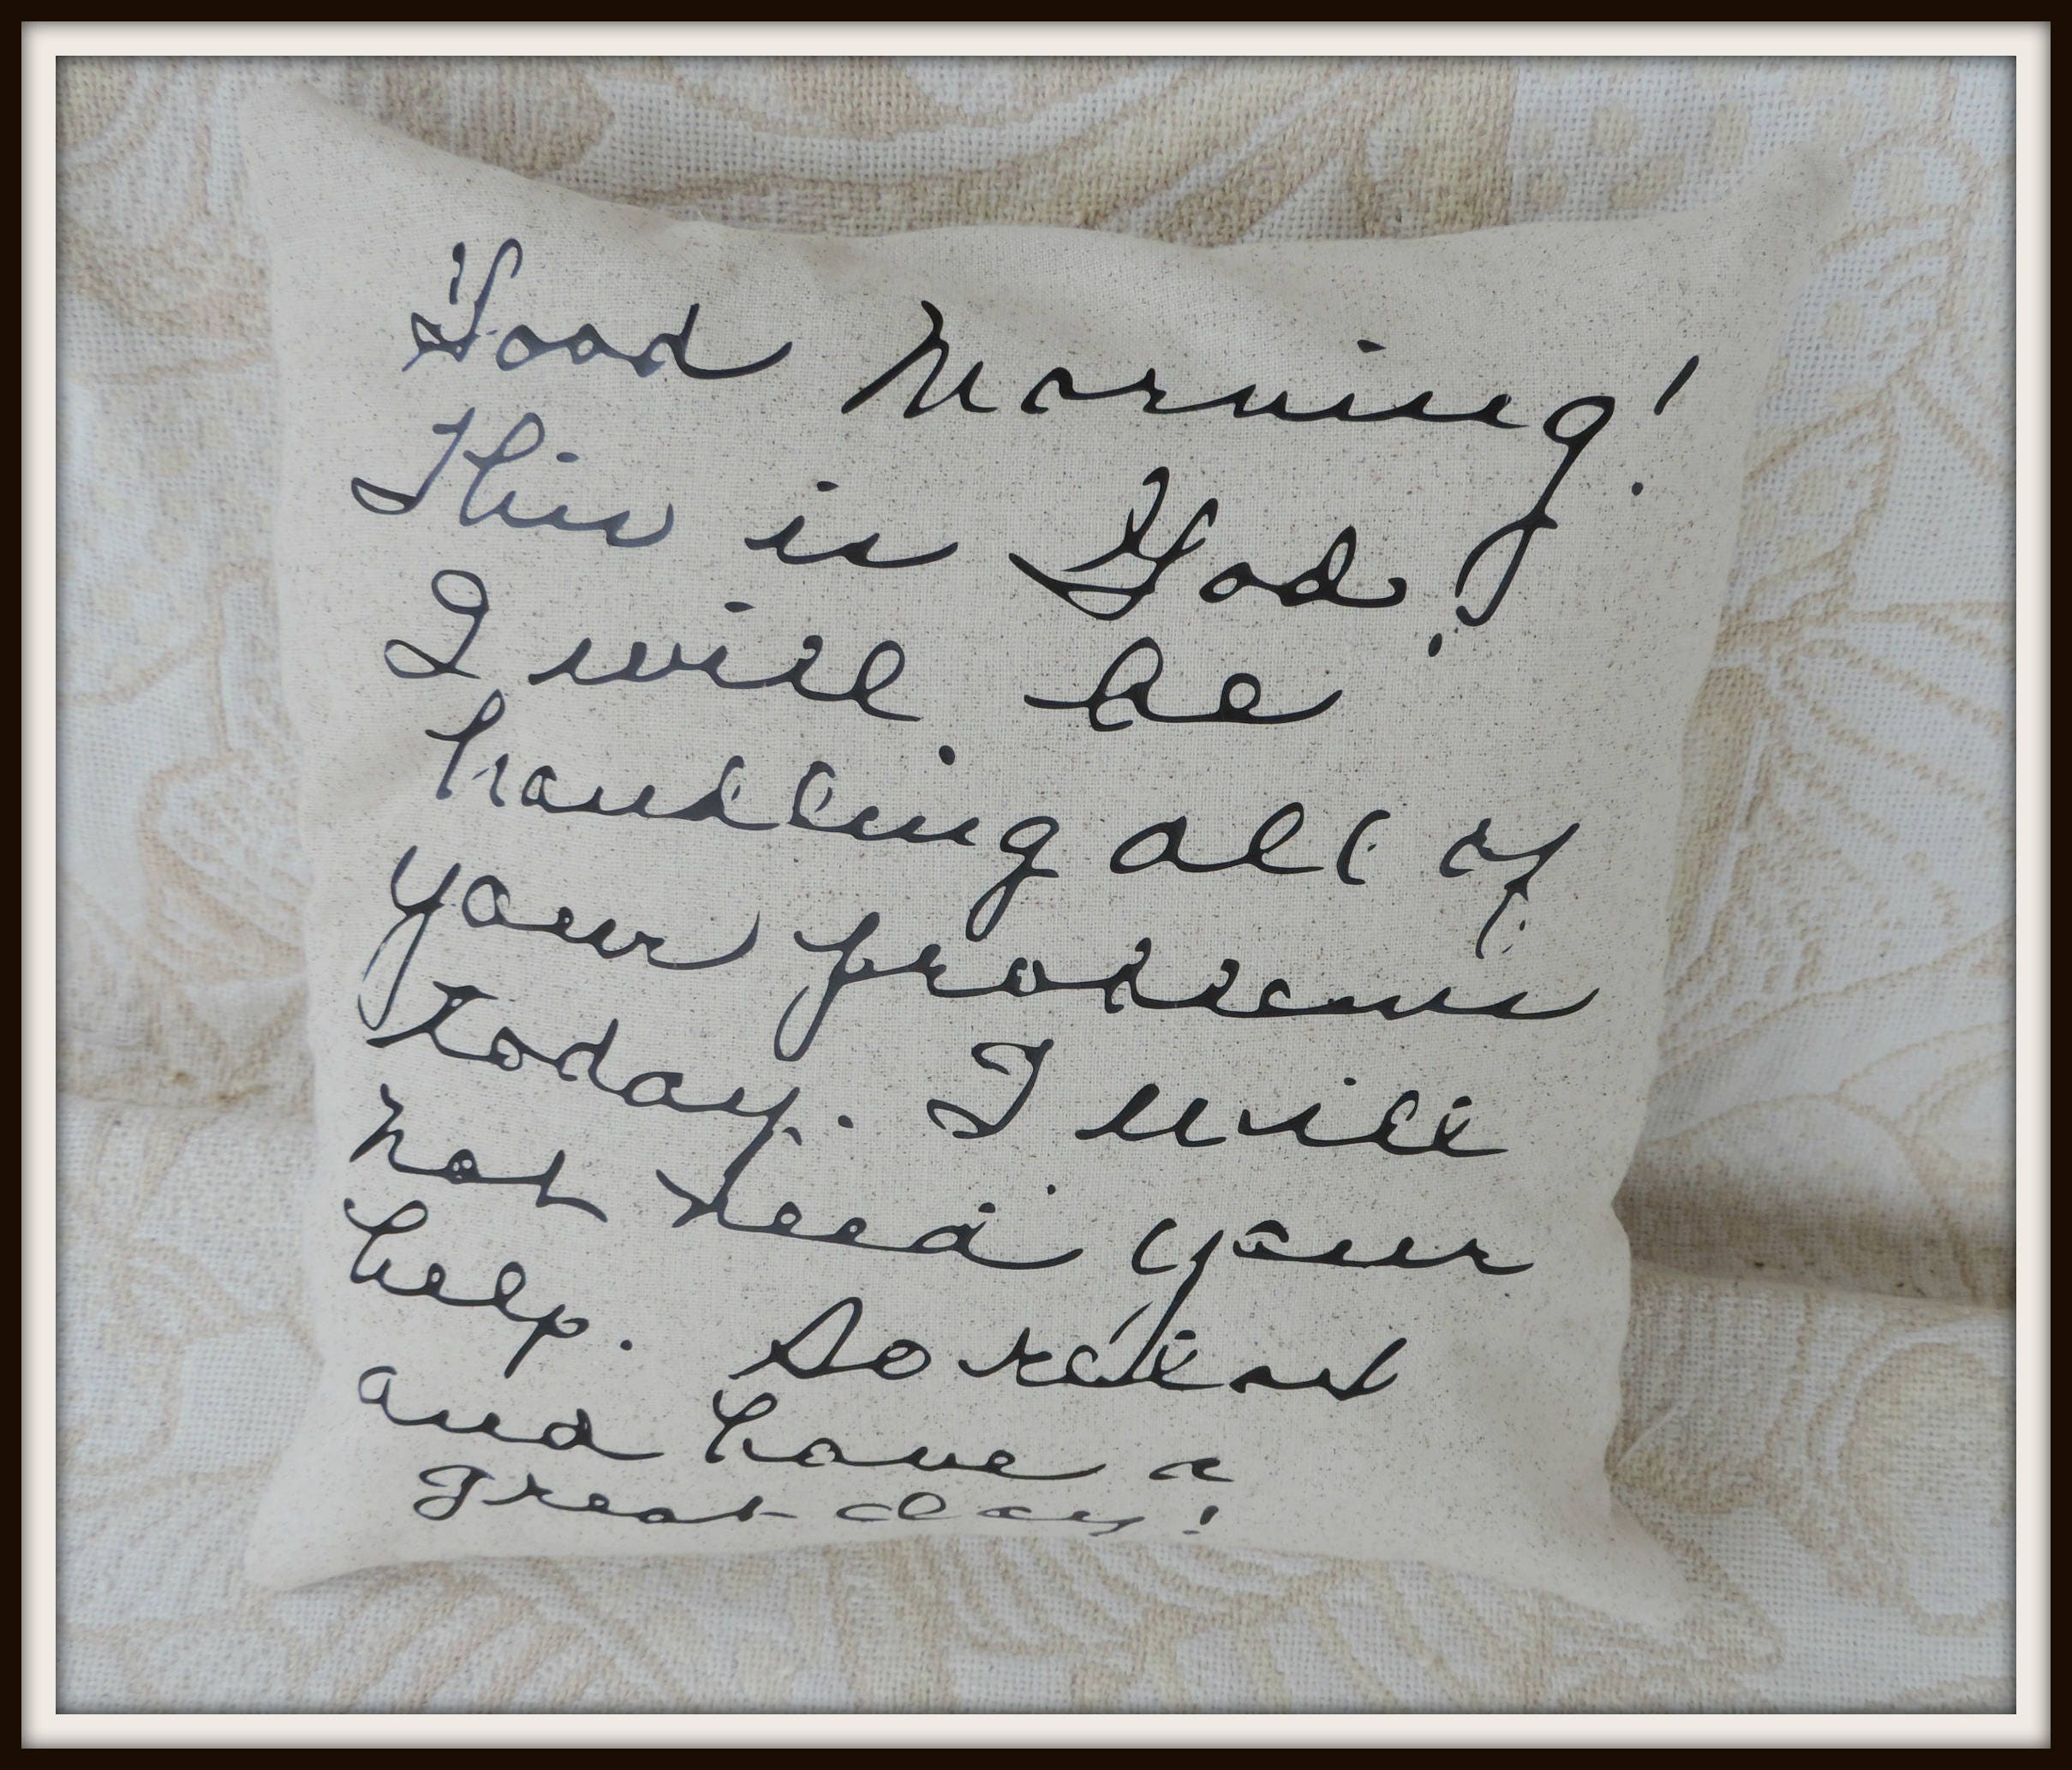 Good Morning!
This is God!
I will be
handling all of
your problems
today. I will
not need your
help. So relax
and have a
great day!